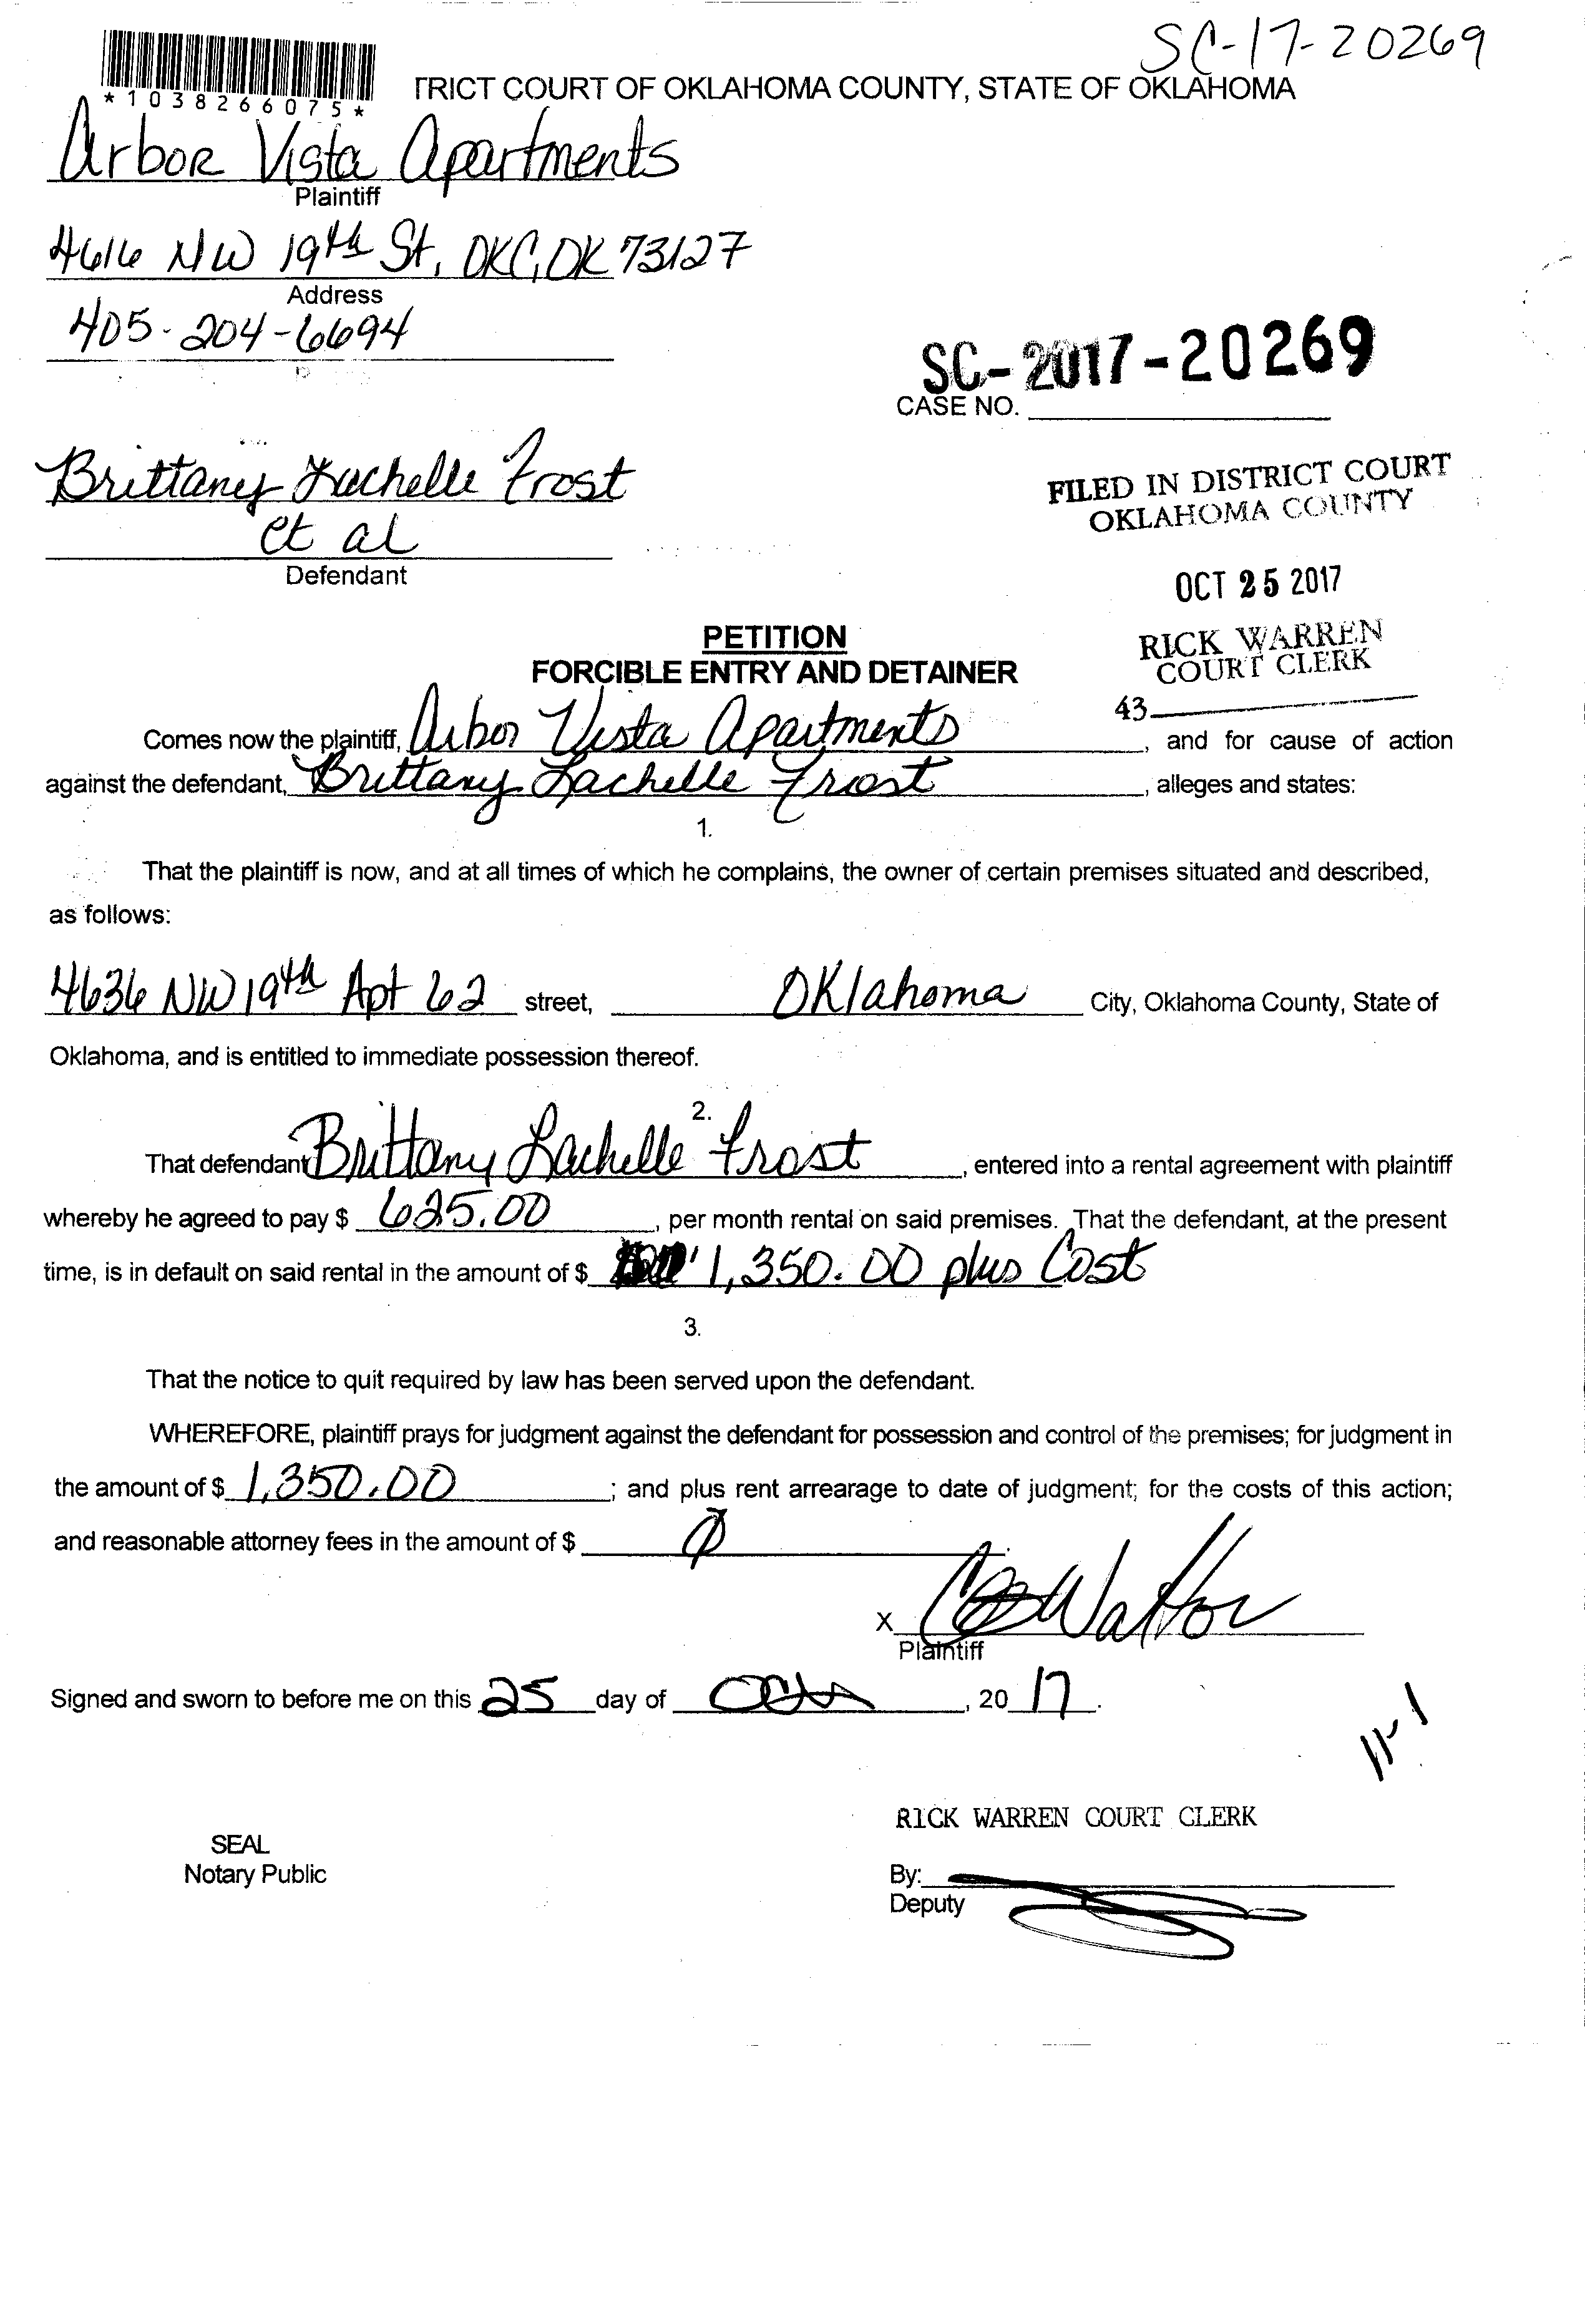 SC-17-20269
*1038266075*
TRICT COURT OF OKLAHOMA COUNTY, STATE OF OKLAHOMA
Arbor Vista Apartments
Plaintiff
4616 NW 19th St, OKC, OK 73127
Address
405-204-6694
SC-2017-20269
CASE NO.
Brittany Lachelle Frost
et al
Defendant
FILED IN DISTRICT COURT
OKLAHOMA COUNTY
OCT 25 2017
RICK WARREN
COURT CLERK
43
PETITION
FORCIBLE ENTRY AND DETAINER
Comes now the plaintiff, Arbor Vista Apartments, and for cause of action
against the defendant, Brittany Lachelle Frost, alleges and states:
1.
That the plaintiff is now, and at all times of which he complains, the owner of certain premises situated and described,
as follows:
4636 NW 19th Apt 62 street, Oklahoma City, Oklahoma County, State of
Oklahoma, and is entitled to immediate possession thereof.
2.
That defendant Brittany Lachelle Frost, entered into a rental agreement with plaintiff
whereby he agreed to pay $ 625.00, per month rental on said premises. That the defendant, at the present
time, is in default on said rental in the amount of $ 1,350.00 plus Cost
3.
That the notice to quit required by law has been served upon the defendant.
WHEREFORE, plaintiff prays for judgment against the defendant for possession and control of the premises; for judgment in
the amount of $ 1,350.00; and plus rent arrearage to date of judgment; for the costs of this action;
and reasonable attorney fees in the amount of $ Ø.
X
Plaintiff
Signed and sworn to before me on this 25 day of Oct, 20 17.
11-1
RICK WARREN COURT CLERK
SEAL
Notary Public
By:
Deputy